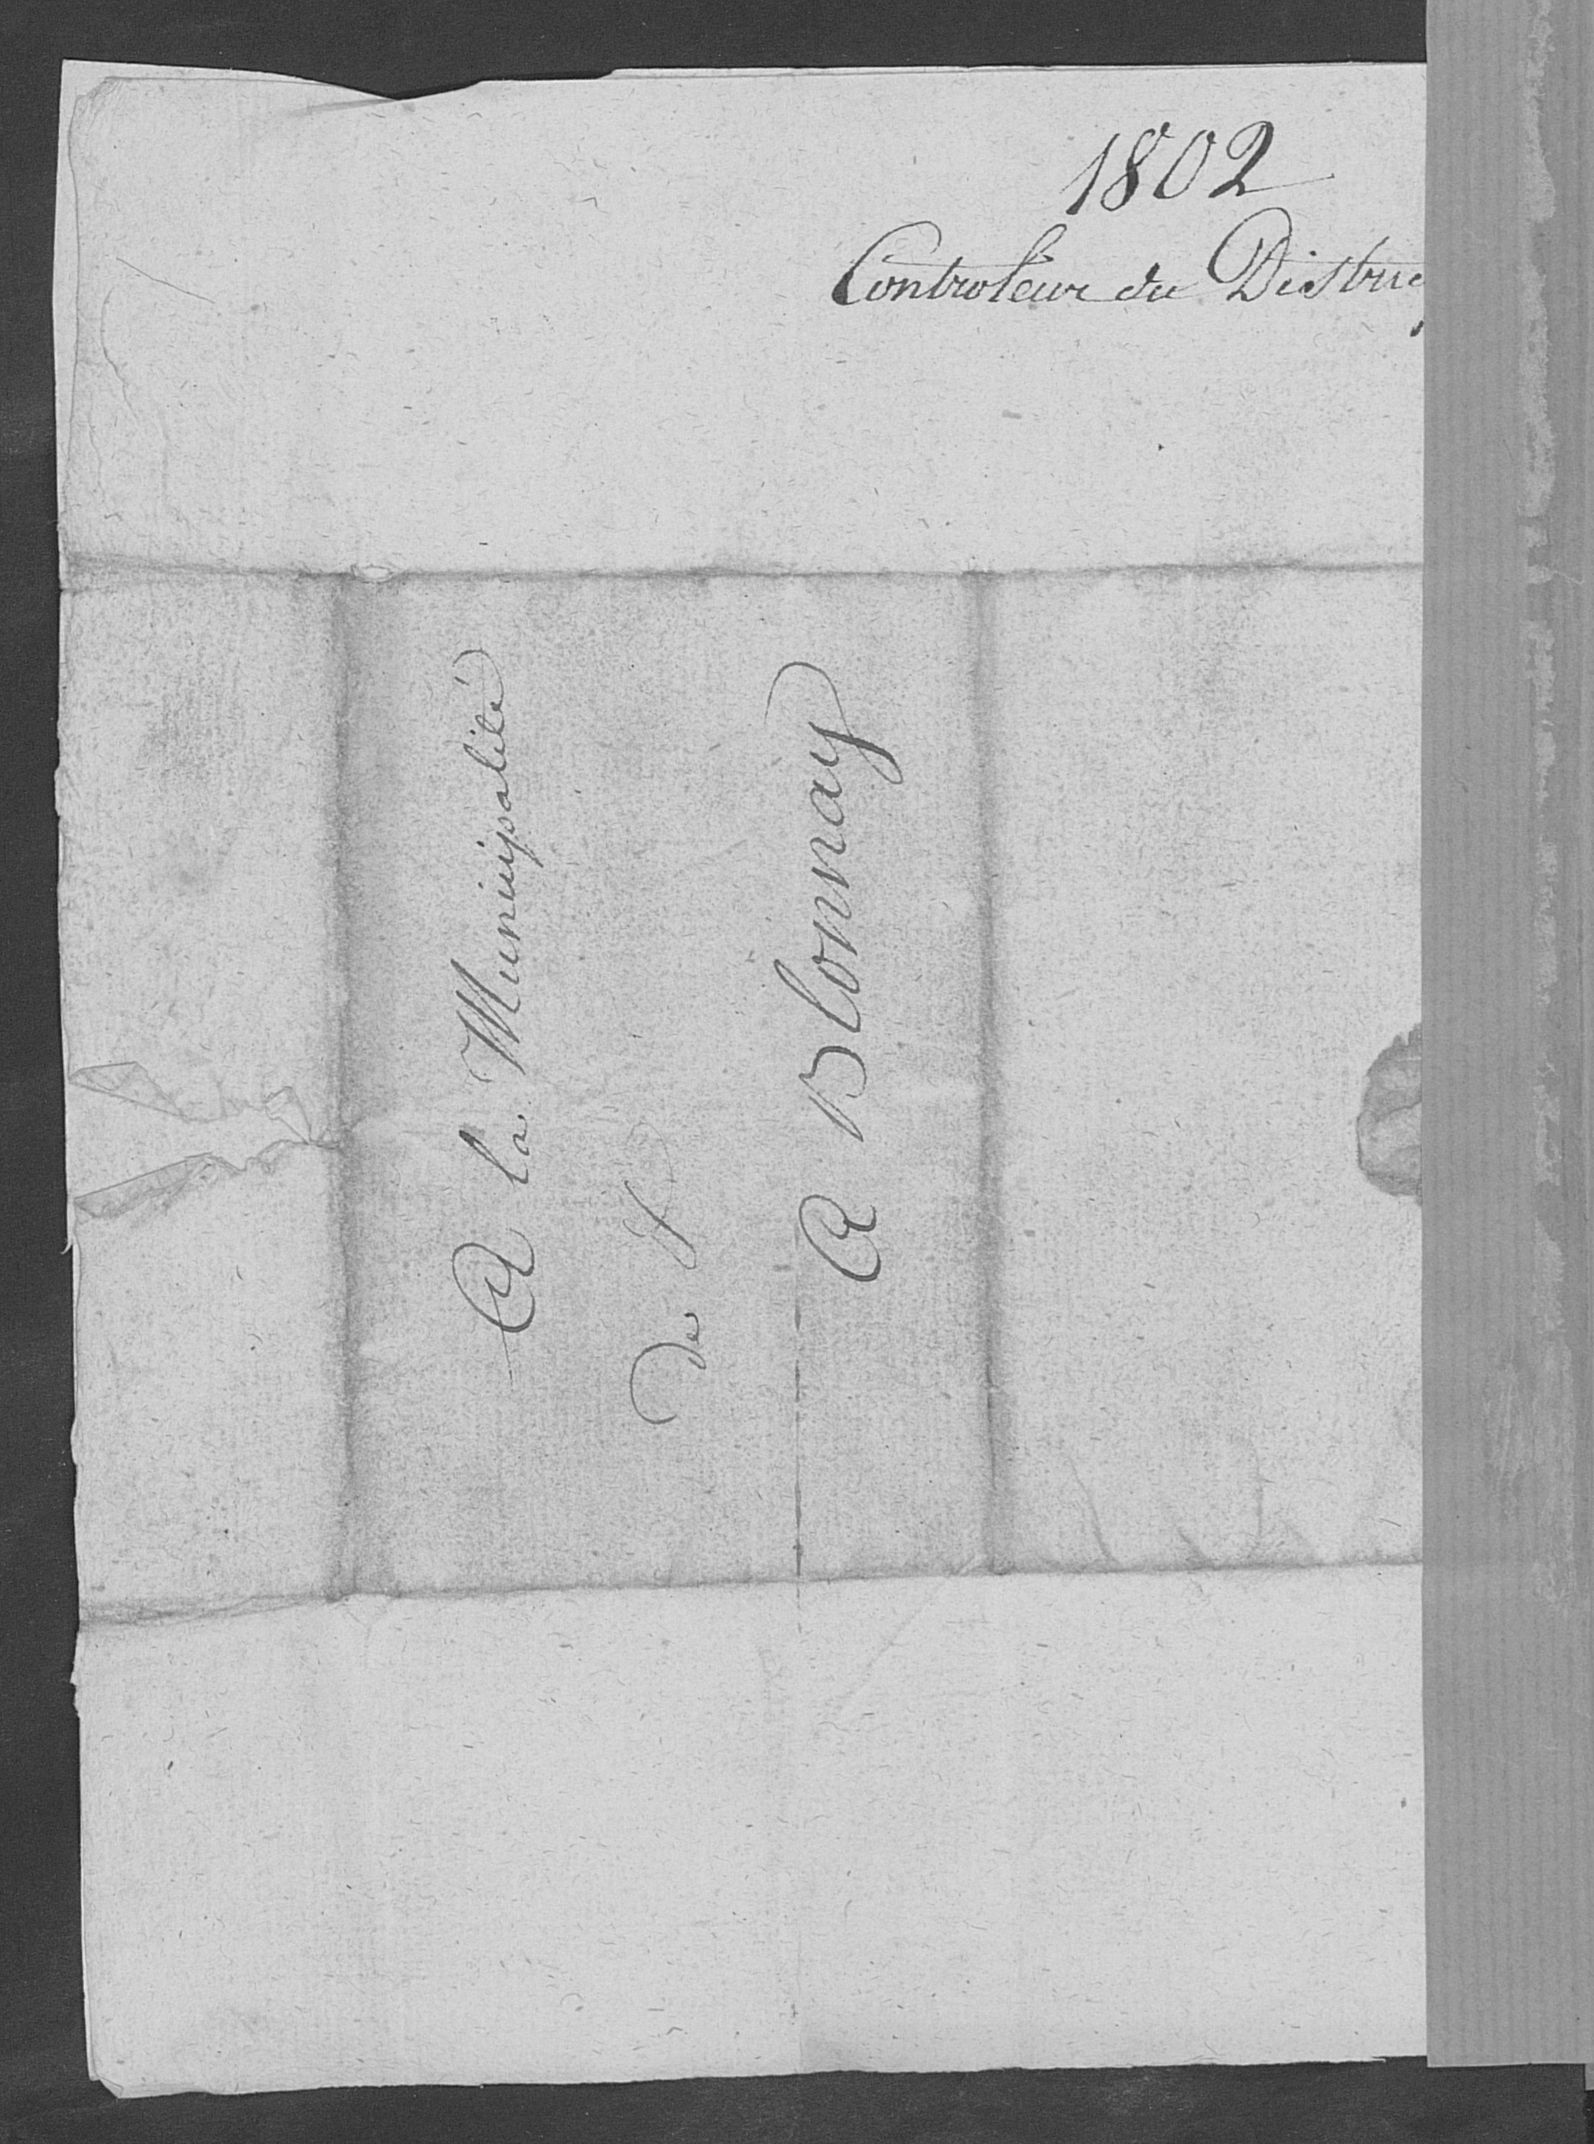 1802
Controleur du Distri
A la Municipalité
de &
A Blonnay